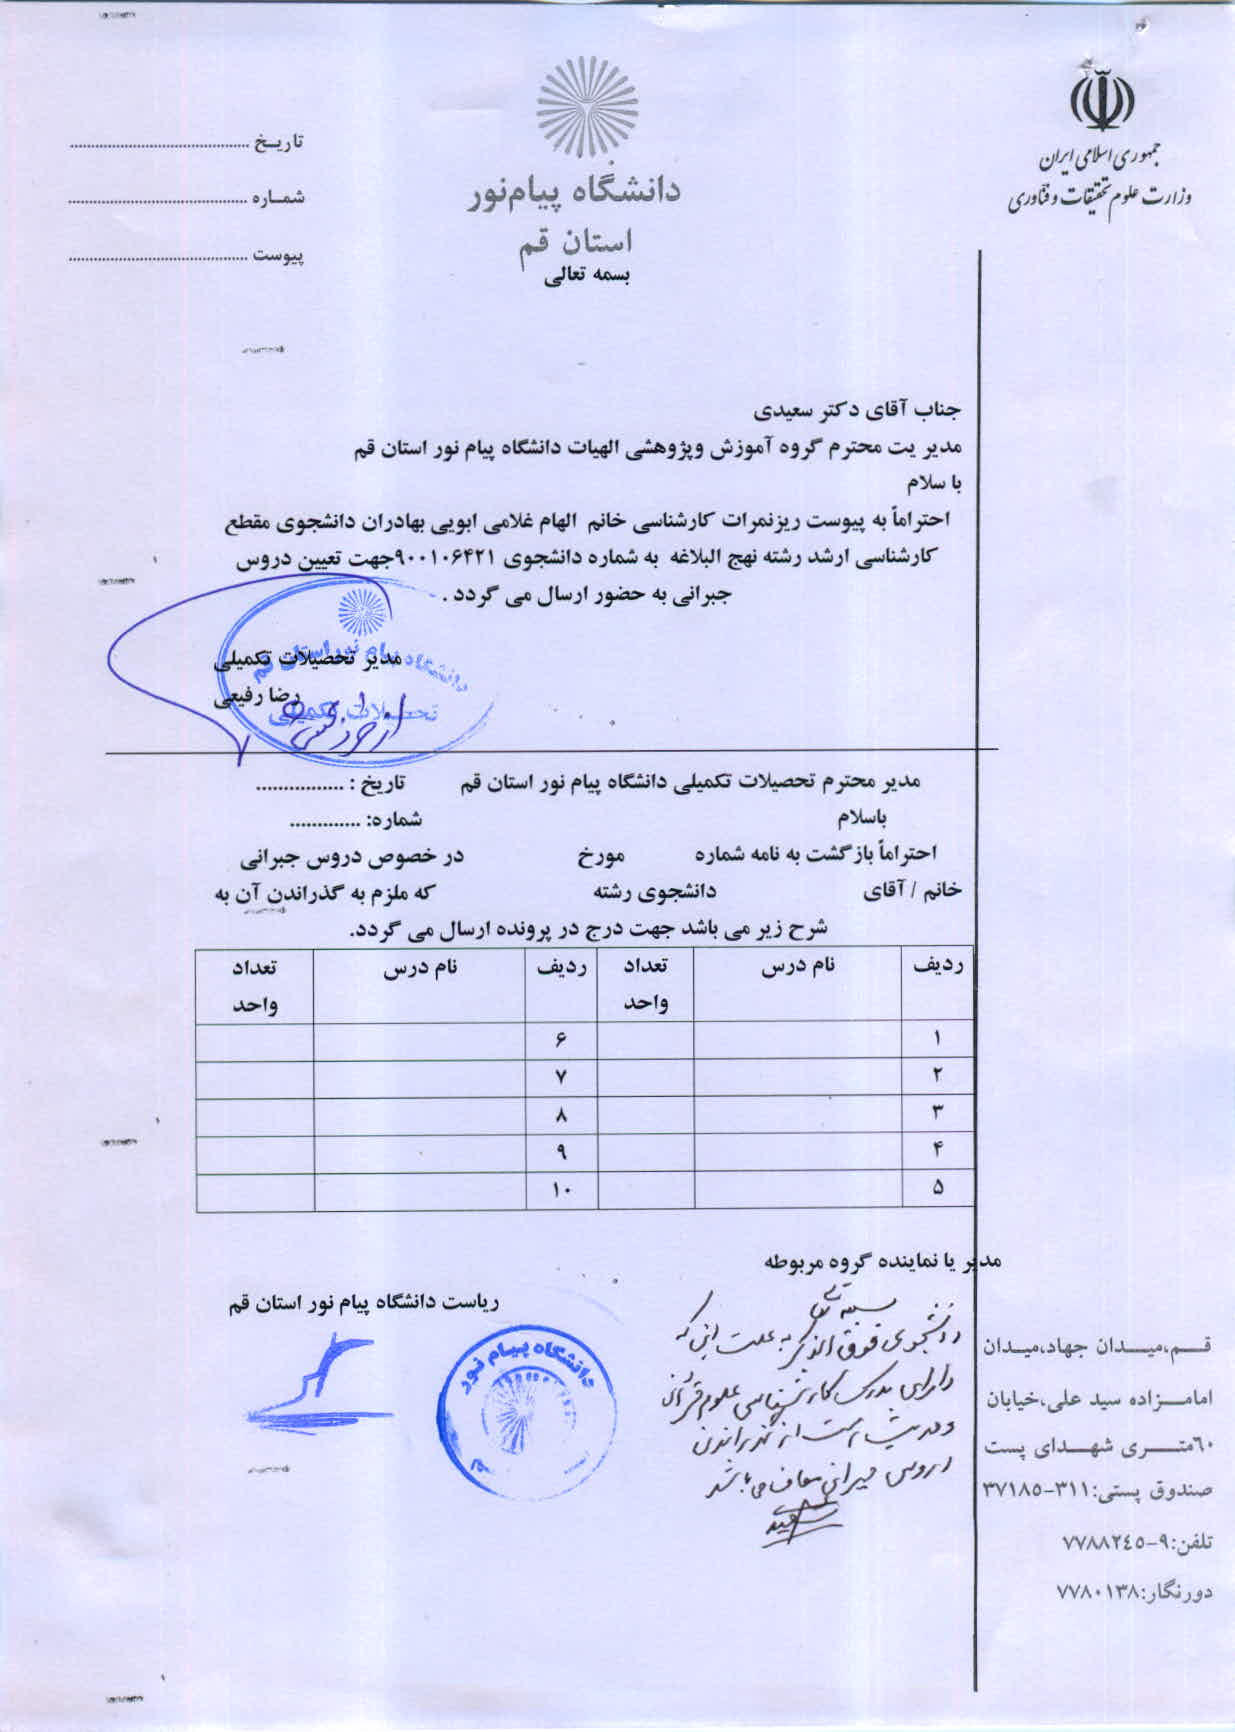 جمهوری اسلامی ایران
وزارت علوم تحقیقات و فنّاوری
دانشگاه پیام‌نور
استان قم
بسمه تعالی
تاریـخ ..........................................
شمـاره ..........................................
پیوست ..........................................
جناب آقای دکتر سعیدی
مدیر یت محترم گروه آموزش وپژوهشی الهیات دانشگاه پیام نور استان قم
با سلام
احتراماً به پیوست ریزنمرات کارشناسی خانم الهام غلامی ابویی بهادران دانشجوی مقطع
کارشناسی ارشد رشته نهج البلاغه به شماره دانشجوی ۹۰۰۱۰۶۴۲۱جهت تعیین دروس
جبرانی به حضور ارسال می گردد .
مدیر تحصیلات تکمیلی
رضا رفیعی
دانشگاه پیام نور استان قم
تحصیلات تکمیلی
مدیر محترم تحصیلات تکمیلی دانشگاه پیام نور استان قم تاریخ : ................
باسلام شماره: .............
احتراماً بازگشت به نامه شماره مورخ در خصوص دروس جبرانی
خانم / آقای دانشجوی رشته که ملزم به گذراندن آن به
شرح زیر می باشد جهت درج در پرونده ارسال می گردد.
ردیف نام درس تعداد واحد ردیف نام درس تعداد واحد
۱ ۶
۲ ۷
۳ ۸
۴ ۹
۵ ۱۰
مدیر یا نماینده گروه مربوطه
ریاست دانشگاه پیام نور استان قم
بسمه تعالی
دانشجوی فوق الذکر به علت اینکه
دارای مدرک کارشناسی علوم قرآن
و حدیث است از گذراندن
دروس جبرانی معاف می باشد
سعیدی
دانشگاه پیام نور
قـــم،میـــدان جهاد،میـدان
امامـــزاده سید علی،خیابان
٦٠متـــری شهـــدای پست
صندوق پستی:۳۱۱-۳۷۱۸۵
تلفن:۹-۷۷۸۸۲٤۵
دورنگار:۷۷۸۰۱۳۸